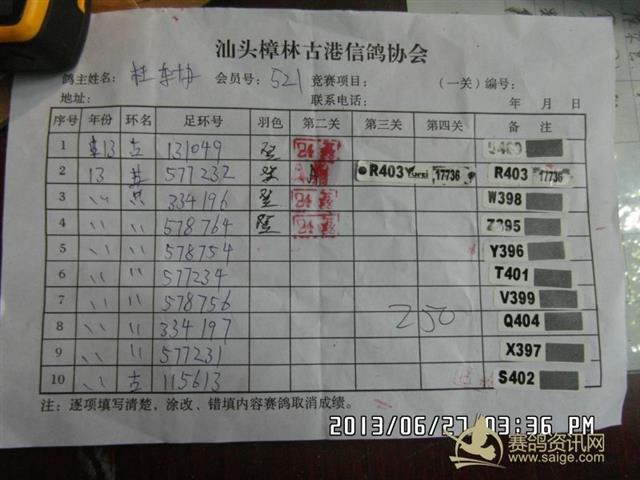 汕头樟林古港信鸽协会
鸽主姓名： 会员号：521 竞赛项目： （一关）编号：
地址： 联系电话： 年 月 日
序号 年份 环名 足环号 羽色 第二关 第三关 第四关 备 注
1 13 古 131049
2 13 577232 R403 17736 R403 17736
3 〃 334196 W398
4 〃 〃 578764
5 〃 〃 578754 Y396
6 〃 〃 577234 T401
7 〃 〃 578756 V399
8 〃 〃 334197 250 Q404
9 〃 〃 577231 X397
10 〃 古 115613 S402
注：逐项填写清楚，涂改、错填内容赛鸽取消成绩。
2013/06/27 03:36 PM
赛鸽资讯网
www.saige.com